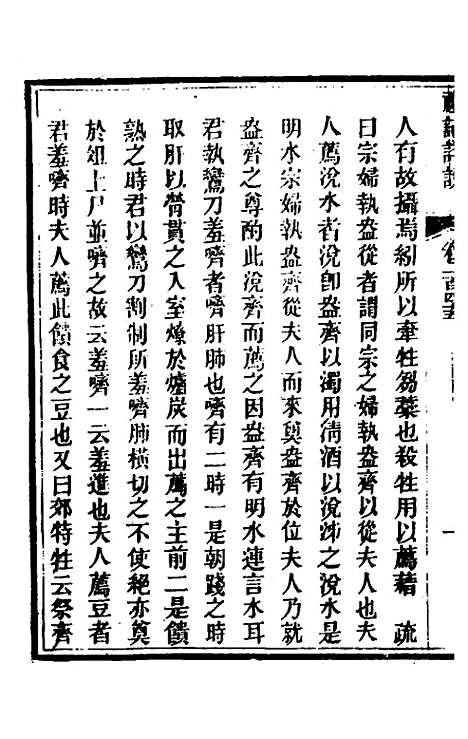 人有故攝焉紖所以牽牲芻藁也殺牲用以薦藉　疏
曰宗婦執盎從者謂同宗之婦執盎齊以從夫人也夫
人薦涗水者涗即盎齊以濁用清酒以涗泲之涗水是
明水宗婦執盎齊從夫人而來奠盎齊於位夫人乃就
盎齊之尊酌此涗齊而薦之因盎齊有明水連言水耳
君執鸞刀羞嚌者嚌肝肺也嚌有二時一是朝踐之時
取肝以膋貫之入室燎於爐炭而出薦之主前二是饋
熟之時君以鸞刀割制所羞嚌肺橫切之不使絕亦奠
於俎上尸並嚌之故云羞嚌一云羞進也夫人薦豆者
君羞嚌時夫人薦此饋食之豆也又曰郊特牲云祭齊